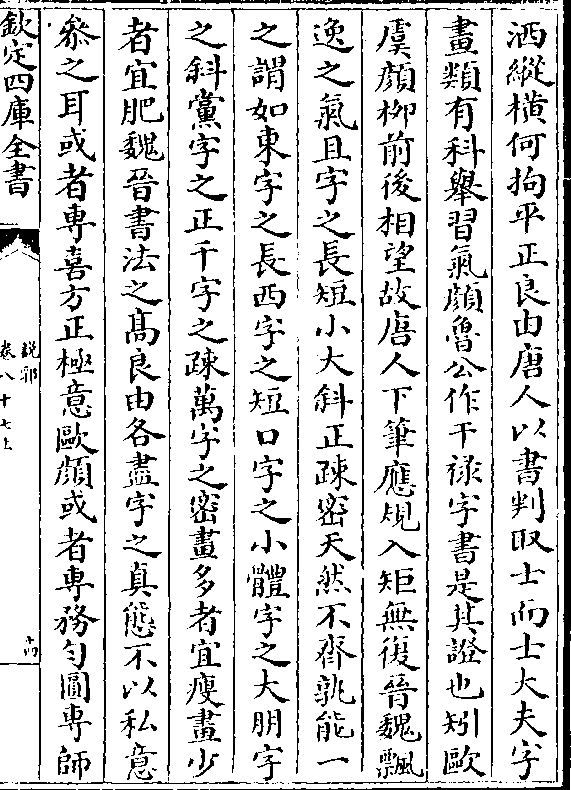 洒縱横何拘平正良由唐人以書判取士而士大夫字
畫類有科舉習氣顔魯公作干禄字書是其證也矧歐
虞顔柳前後相望故唐人下筆應規入矩無復晉魏飄
逸之氣且字之長短小大斜正疎密天然不齊孰能一
之謂如東字之長西字之短口字之小體字之大朋字
之斜黨字之正千字之疎萬字之密畫多者宜瘦畫少
者宜肥魏晉書法之髙良由各盡字之真態不以私意
叅之耳或者專喜方正極意歐顔或者專務匀圓專師
欽定四庫全書
説郛
卷八十七上
十四